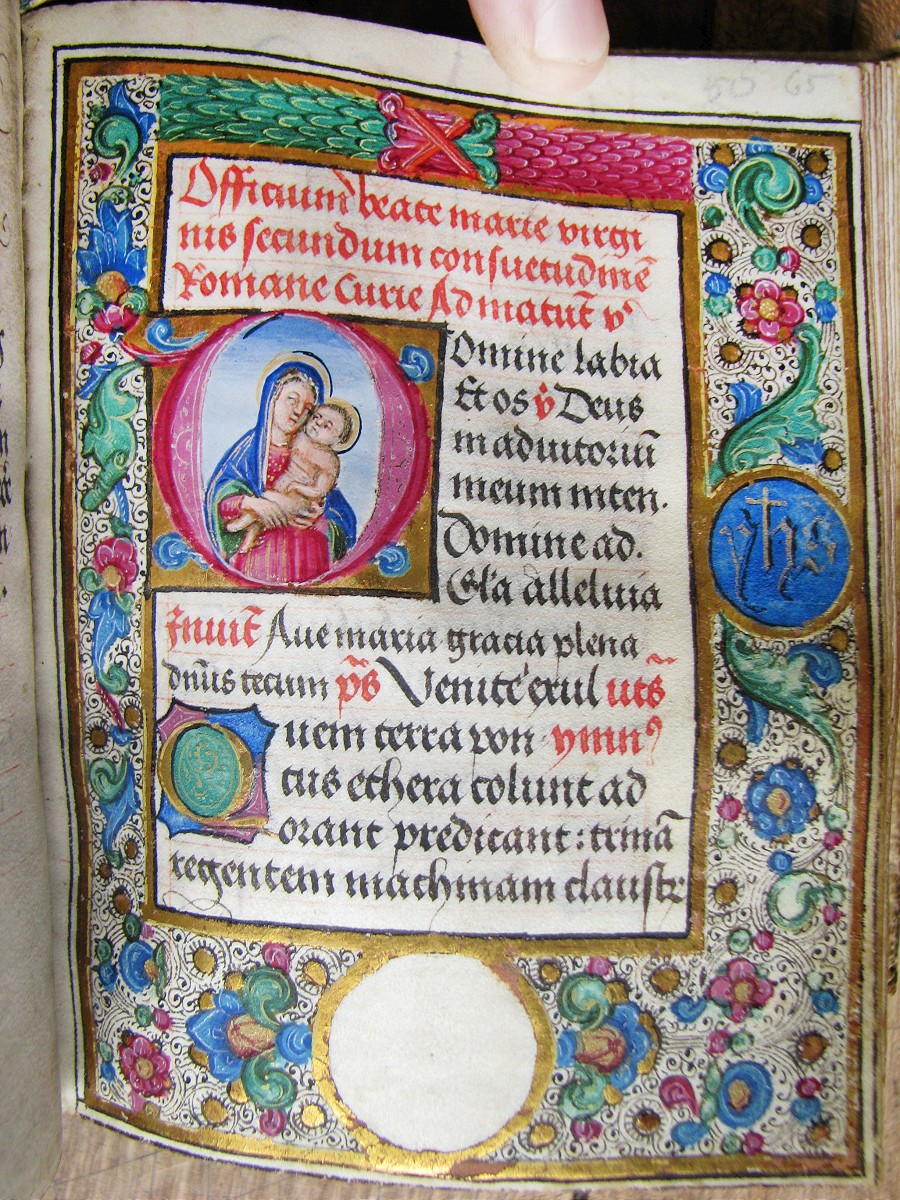 50 65
Officium beate marie virgi
nis secundum consuetudinē
Romane Curie Ad matut̄ v᷒
Omine labia
Et os v Deus
in adiutoriū
meum inten.
Domine ad.
Gl'a alleluia
Inuit̄ Aue maria gracia plena
dn̄us tecum ps̄ Venite exul uts̄
uem terra pon ymnꝰ
tus ethera colunt ad
orant predicant : trinā
regentem machinam claustr
yhs